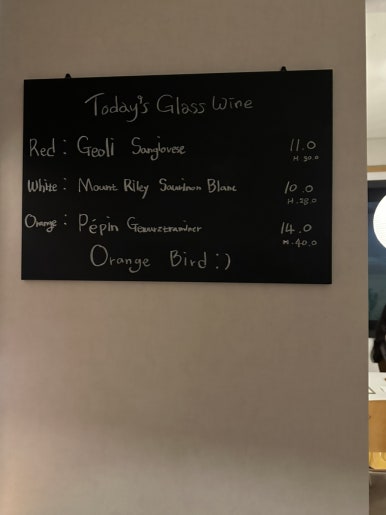 Today's Glass Wine
Red: Geoli Sangiovese 11.0
White: Mount Riley Sauvinon Blanc 10.0
Orange: Pépin Gewurztraminer 14.0
H.40.0
Orange Bird :)